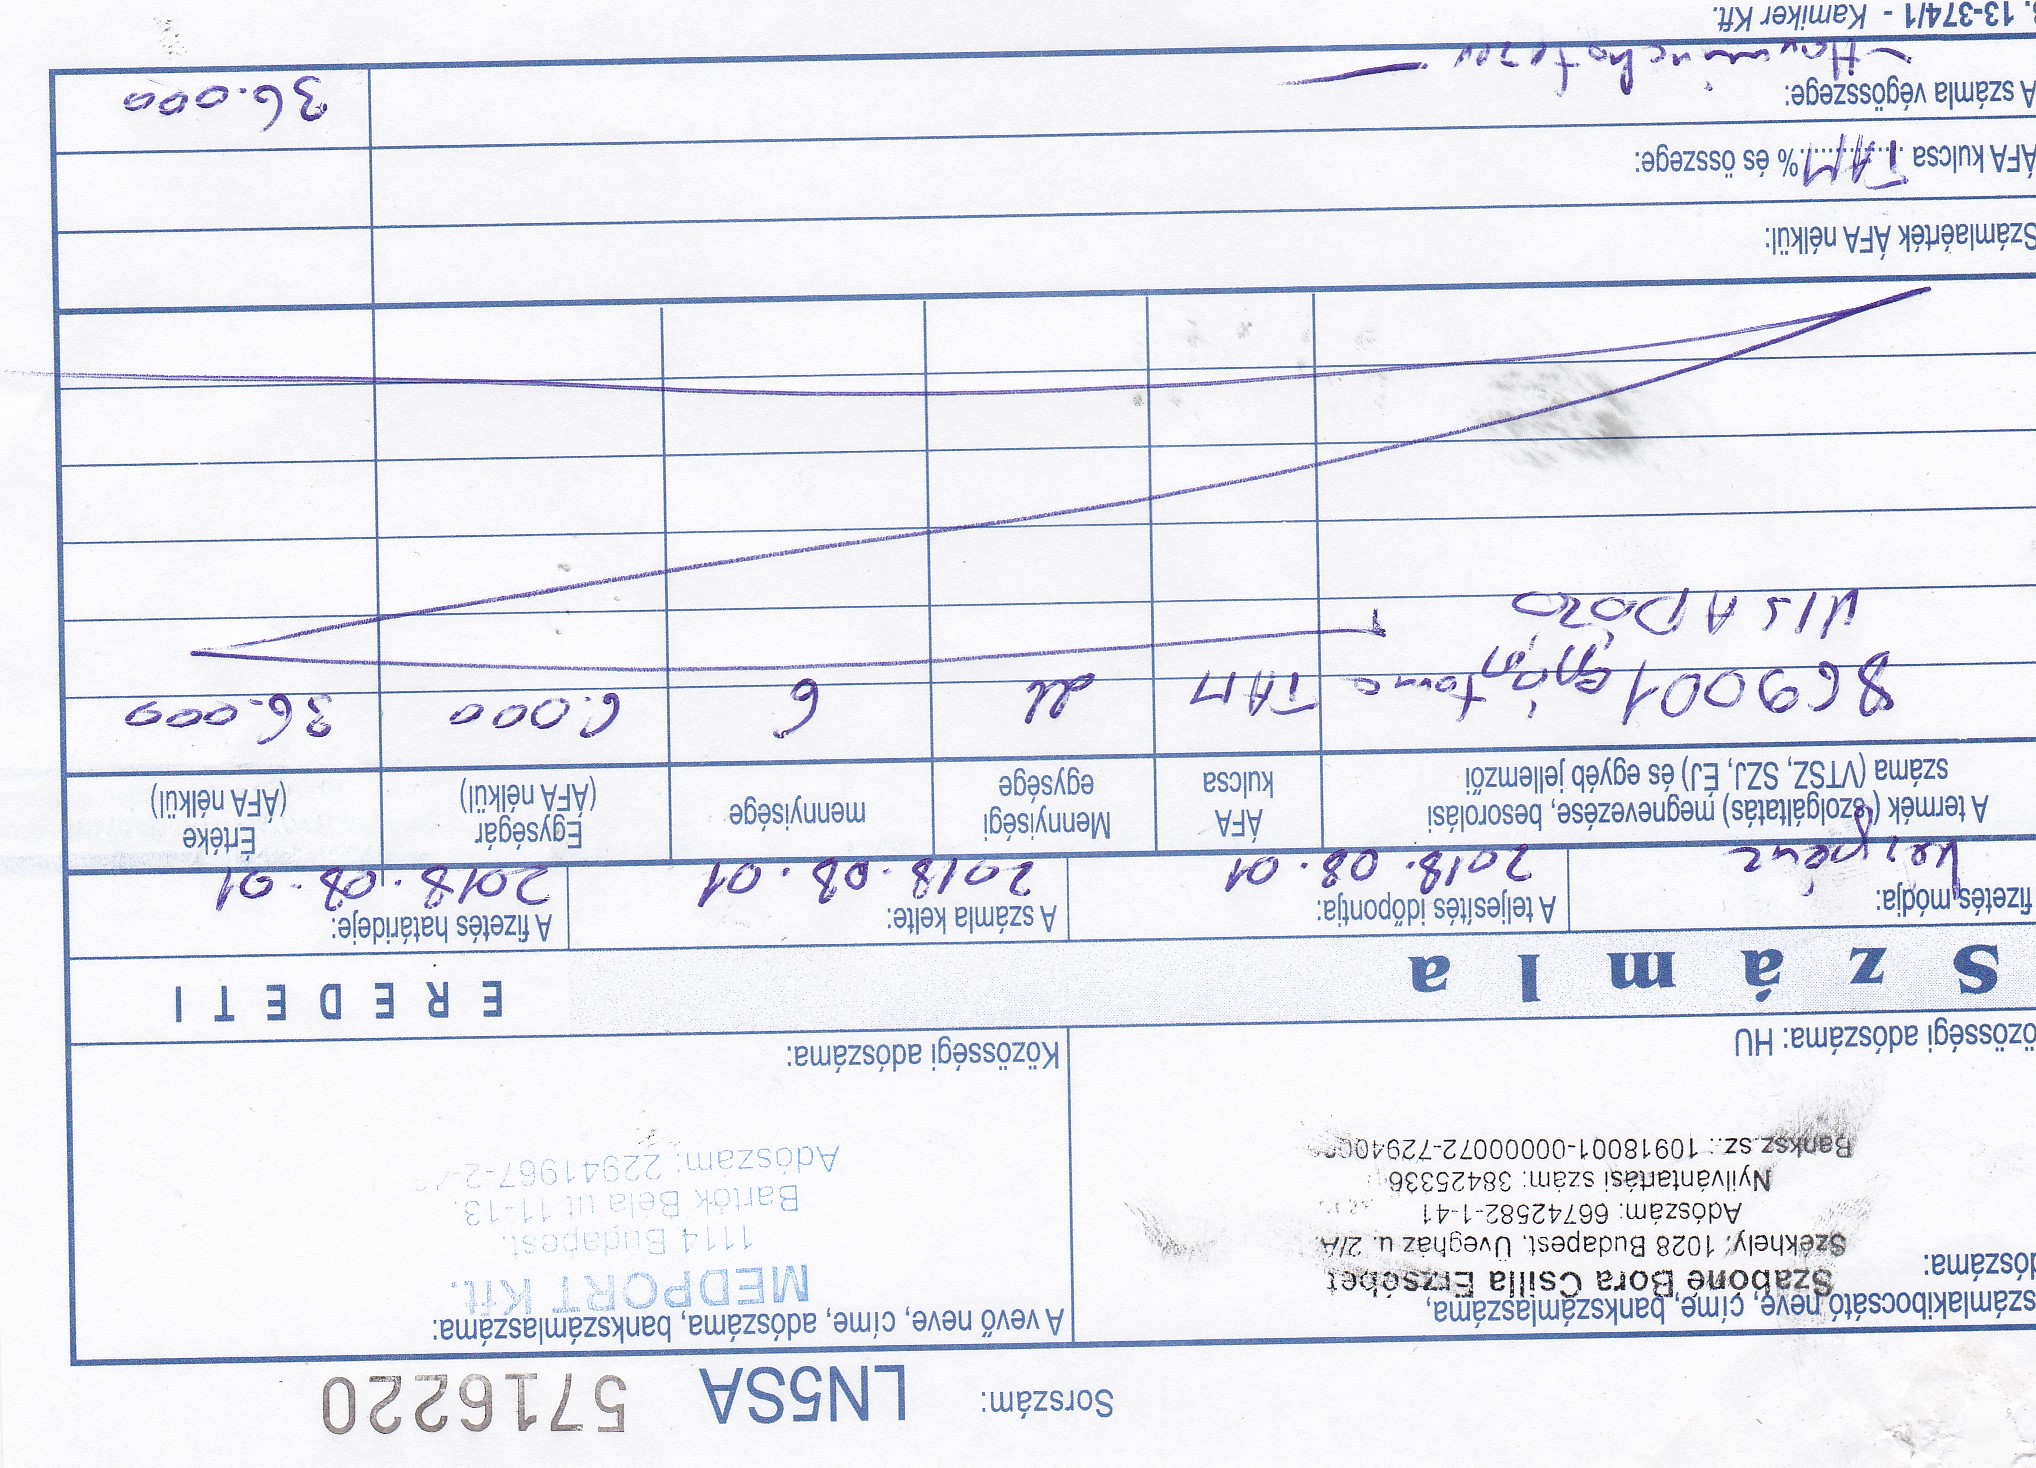 Sorszám: LN5SA 5716220
számlakibocsátó neve, címe, bankszámlaszáma,
dószáma:
Szabóné Bora Csilla Erzsébet
Székhely: 1028 Budapest, Üvegház u. 2/A.
Adószám: 66742582-1-41
Nyilvántartási szám: 38425336
Banksz.sz.: 10918001-00000072-72940
özösségi adószáma: HU
A vevő neve, címe, adószáma, bankszámlaszáma:
MEDPORT Kft.
1114 Budapest,
Bartók Béla út 11-13.
Adószám: 22941967-2-4
Közösségi adószáma:
Számla
EREDETI
fizetés módja:
készpénz
A teljesítés időpontja:
2018.08.01
A számla kelte:
2018.08.01
A fizetés határideje:
2018.08.01
A termék (szolgáltatás) megnevezése, besorolási
száma (VTSZ, SZJ, ÉJ) és egyéb jellemzői
ÁFA
kulcsa
Mennyiségi
egysége
mennyisége
Egységár
(ÁFA nélkül)
Értéke
(ÁFA nélkül)
869001 gyógytorna TAM db 6 6.000 36.000
KISADÓZÓ
Számlaérték ÁFA nélkül:
ÁFA kulcsa TAM % és összege:
A számla végösszege: 36.000
- Harminchatezer -
B. 13-374/1 - Kamiker Kft.